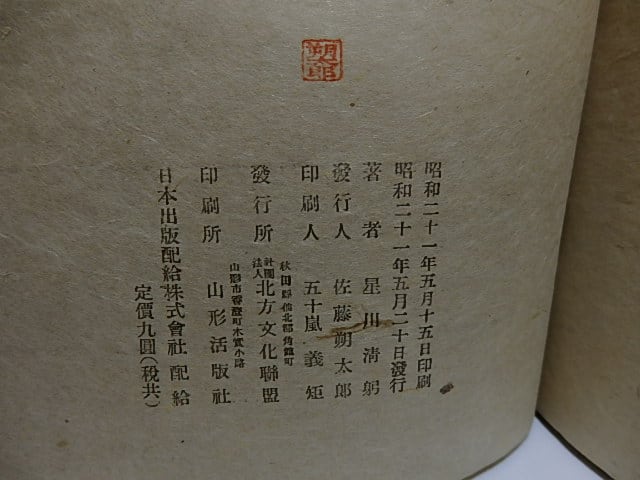 朔郎
昭和二十一年五月十五日印刷
昭和二十一年五月二十日發行
著者 星川清躬
發行人 佐藤朔太郎
印刷人 五十嵐義矩
秋田縣仙北郡角館町
發行所 社團法人 北方文化聯盟
山形市香澄町木實小路
印刷所 山形活版社
日本出版配給株式會社配給
定價九圓（税共）